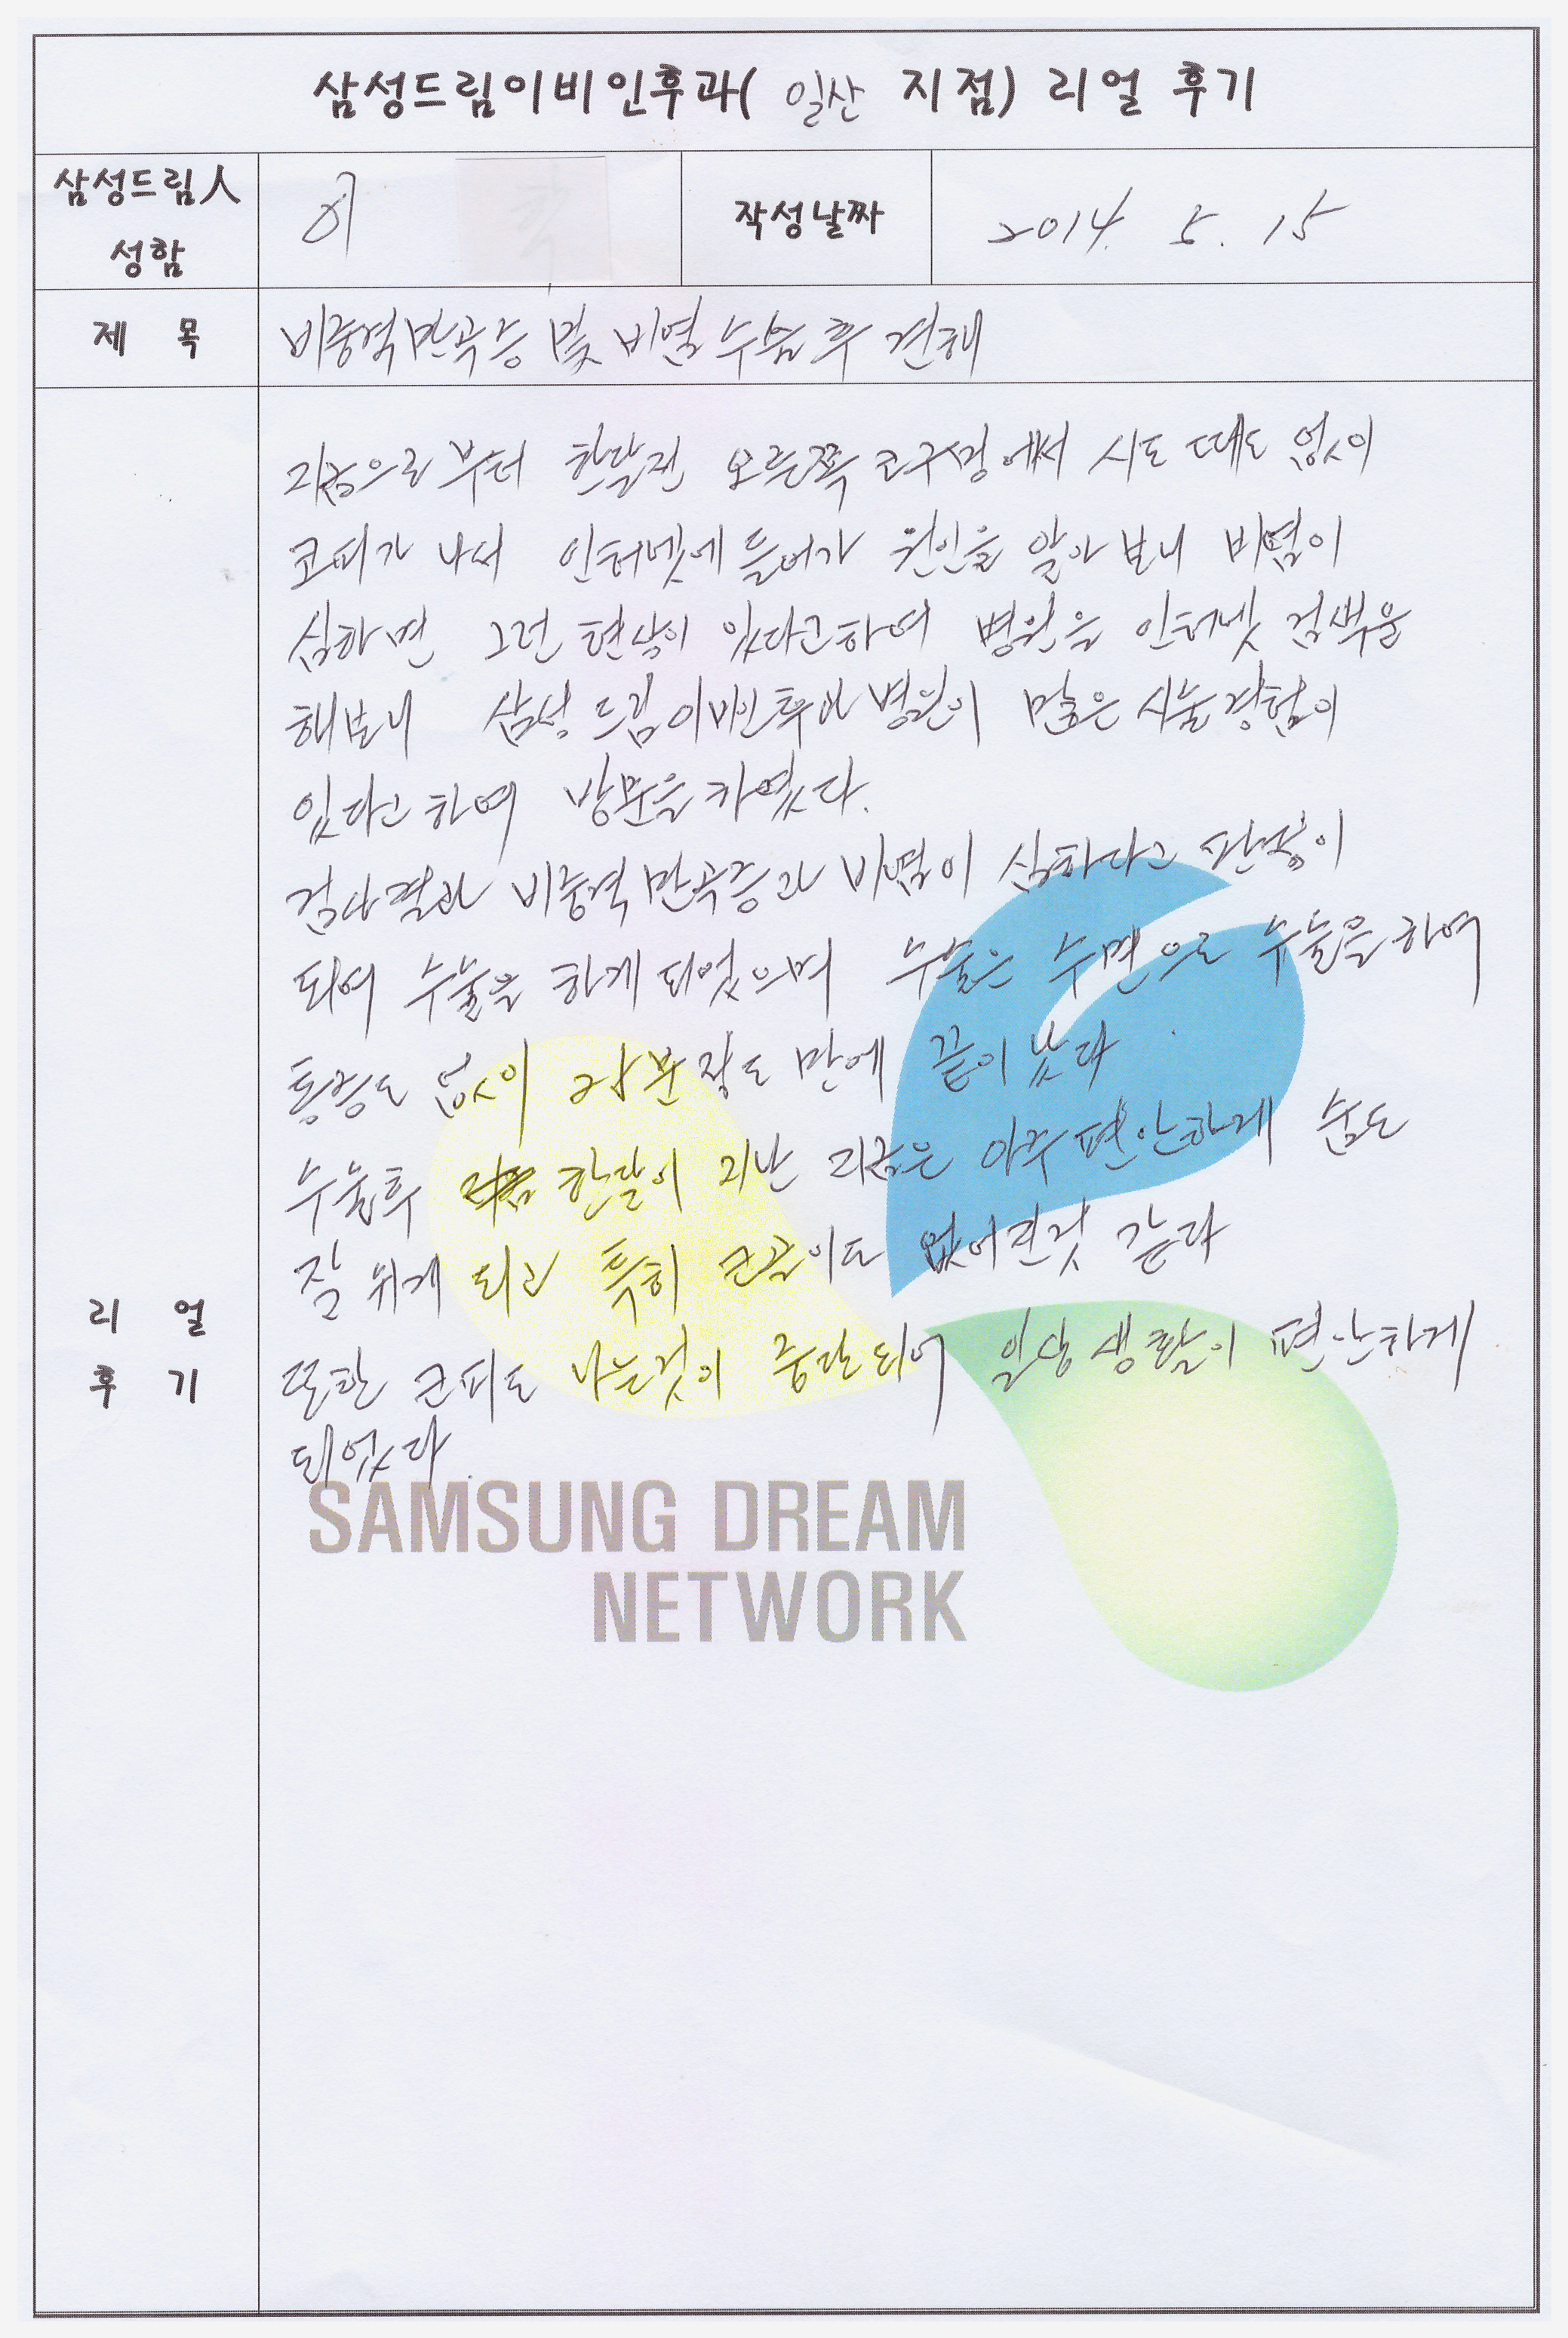 삼성드림이비인후과( 일산 지점) 리얼 후기
삼성드림人
성함
이
작성날짜
2014. 5. 15
제 목
비중격만곡증 및 비염 수술 후 견해
지금으로부터 한달전 오른쪽 코구멍에서 시도 때도 없이
코피가 나서 인터넷에 들어가 원인을 알아 보니 비염이
심하면 그런 현상이 있다고하여 병원을 인터넷 검색을
해보니 삼성드림이비인후과병원이 많은 시술경험이
있다고하여 방문을 하였다.
검사결과 비중격만곡증과 비염이 심하다고 판정이
되어 수술을 하게 되었으며 수술은 수면으로 수술을하여
통증도 없이 정도 만에 끝이 났다
수술후 한달이 지난 지금은 아주편안하게 숨도
잘 쉬게 되고 특히 코골이도 없어진것 같다
또한 코피도 나는것이 중단되어 일상생활이 편안하게
되었다.
리 얼
후 기
SAMSUNG DREAM
NETWORK